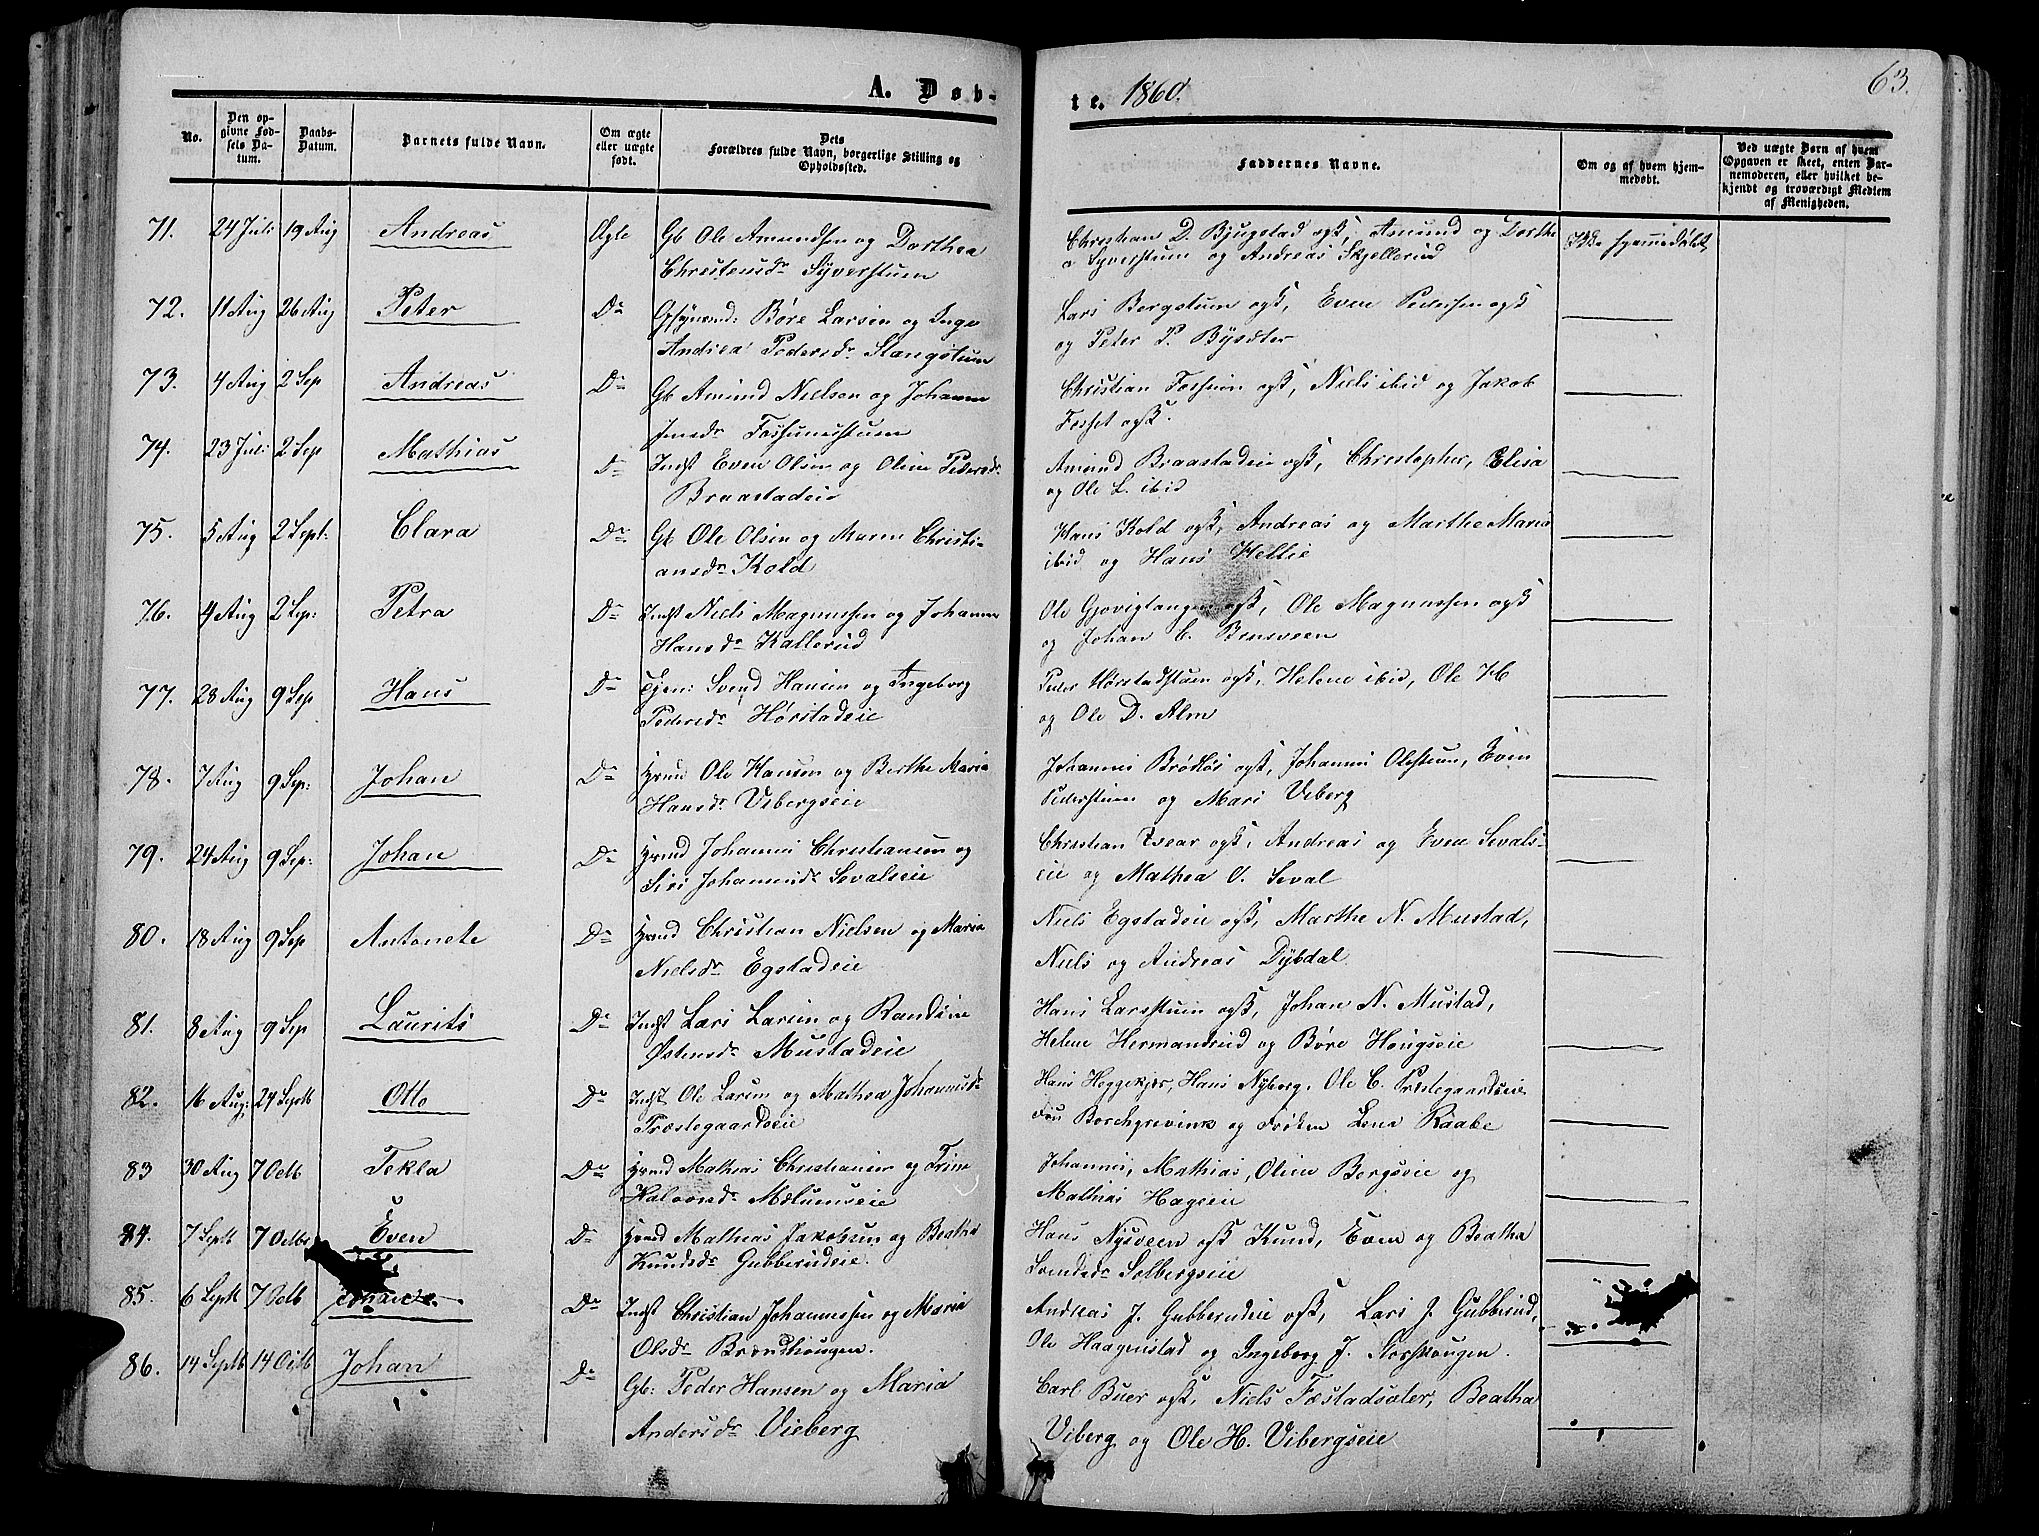 A. Døb-
te. 1860.
63.
No.
Den op-
givne Fød-
sels Da-
tum.
Daabs-
Datum.
Barnets fulde Navn.
Om ægte
eller uægte
født.
Dets
Forældres fulde Navn, borgerlige Stilling og
Opholdssted.
Faddernes Navne.
Om og af hvem hjem-
medøbt.
Ved uægte Børn af hvem
Opgaven er skeet, enten Bar-
nemoderen, eller hvilket be-
kjendt og troværdigt Medlem
af Menigheden.
71. 24 Juli 19 Aug Andreas Ægte Gb Ole Amundsen og Dorthea
Christensdr Syverstuen
Christian D. Bjugstad ogk, Amund og Dorthe
a Syverstuen og Andreas Skjellerud
Ikke hjemmedøbt
72. 11 Aug 26 Aug Peter Do Børe Larsen og Inge
Andrea Pedersdr Slangstuen
Lars Bergstuen ogk, Even Pedersen ogk
og Peter P.
73. 4 Aug 2 Sep Andreas Do Gb Amund Nielsen og Johanne
Jensdr Fossumstuen
Christian Fossum ogk, Niels ibid og Jakob
Fosset ogk.
74. 23 Juli 2 Sep Mathias Do Indst Even Olsen og Oline Pedersdr
Braastadeie
Amund Braastadeie ogk, Christopher, Elisa
og Ole L. ibid
75. 5 Aug 2 Sept: Clara Do Gb Ole Olsen og Maren Christi-
ansdr Kold
Hans Kold ogk, Andreas og Marthe Marie
ibid og Hans Hellie
76. 4 Aug 2 Sep: Petra Do Indst Niels Magnussen og Johanne
Hansdr Kallerud
Ole Gjøvigtangen ogk, Ole Magnussen ogk
og Johan C. Brusveen
77. 28 Aug 9 Sep Hans Do Ejen: Svend Hansen og Ingeborg
Pedersdr Hørstadeie
Peder Hørstadstuen ogk, Helene ibid, Ole H
og Ole D. Alm
78. 7 Aug 9 Sep: Johan Do Hmd Ole Hansen og Berthe Maria
Hansdr Vibergseie
Johannes Brødløs ogk, Johannes Olestuen, Even
Pederstuen og Mari Viberg
79. 24 Aug 9 Sep: Johan Do Hmd Johannes Christiansen og
Siri Johannesdr Sevalseie
Christian ogk, Andreas og Even Sevals-
eie og Mathea O. Seval
80. 18 Aug 9 Sep Antonete Do Hmd Christian Nielsen og Maria
Nielsdr Egstadeie
Niels Egstadeie ogk, Marthe N. Mustad,
Niels og Andreas Dybdal
81. 8 Aug 9 Sep Laurits Do Indst Lars Larsen og Randine
Østensdr Mustadeie
Hans Larsstuen ogk, Johan N. Mustad,
Helene Hermandrud og Børe Høngseie
82. 16 Aug: 24 Septb Otto Do Indst Ole Larsen og Mathea Johannesdr
Præstegaardseie
Hans Heggekjær, Hans Nyberg, Ole C. Præstegaardseie
Fru Borchgrevink og Frøken Lena Raabe
83 30 Aug 7 Octb Tekla Do Hmd Mathias Christiansen og Trine
Halvorsdr Mælumseie
Johannes, Mathias, Oline Bergseie og
Mathias Hageeie
84. 7 Septb 7 Octbr Even Do Hmd Mathias Jakobsen og Beathe
Knudsdr Gubberudeie.
Hans Nysveen ogk Knud, Even og Beatha
Svendsdr Solbergseie
85. 6 Septb 7 Octb Do Indst Christian Johannessen og Maria
Olsdr Brændhaugen.
Andreas J. Gubberudeie ogk, Lars J. Gubberud,
Ole Haagenstad og Ingeborg J.
86. 14 Septb 14 Octb Johan Do Gb: Peder Hansen og Maria
Andersdr Vieberg
Carl Buer ogk, Niels Fæstadsæter, Beatha
Viberg og Ole H. Vibergseie